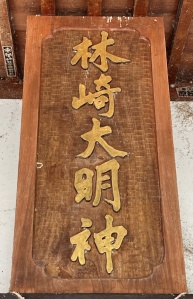 林崎大明神